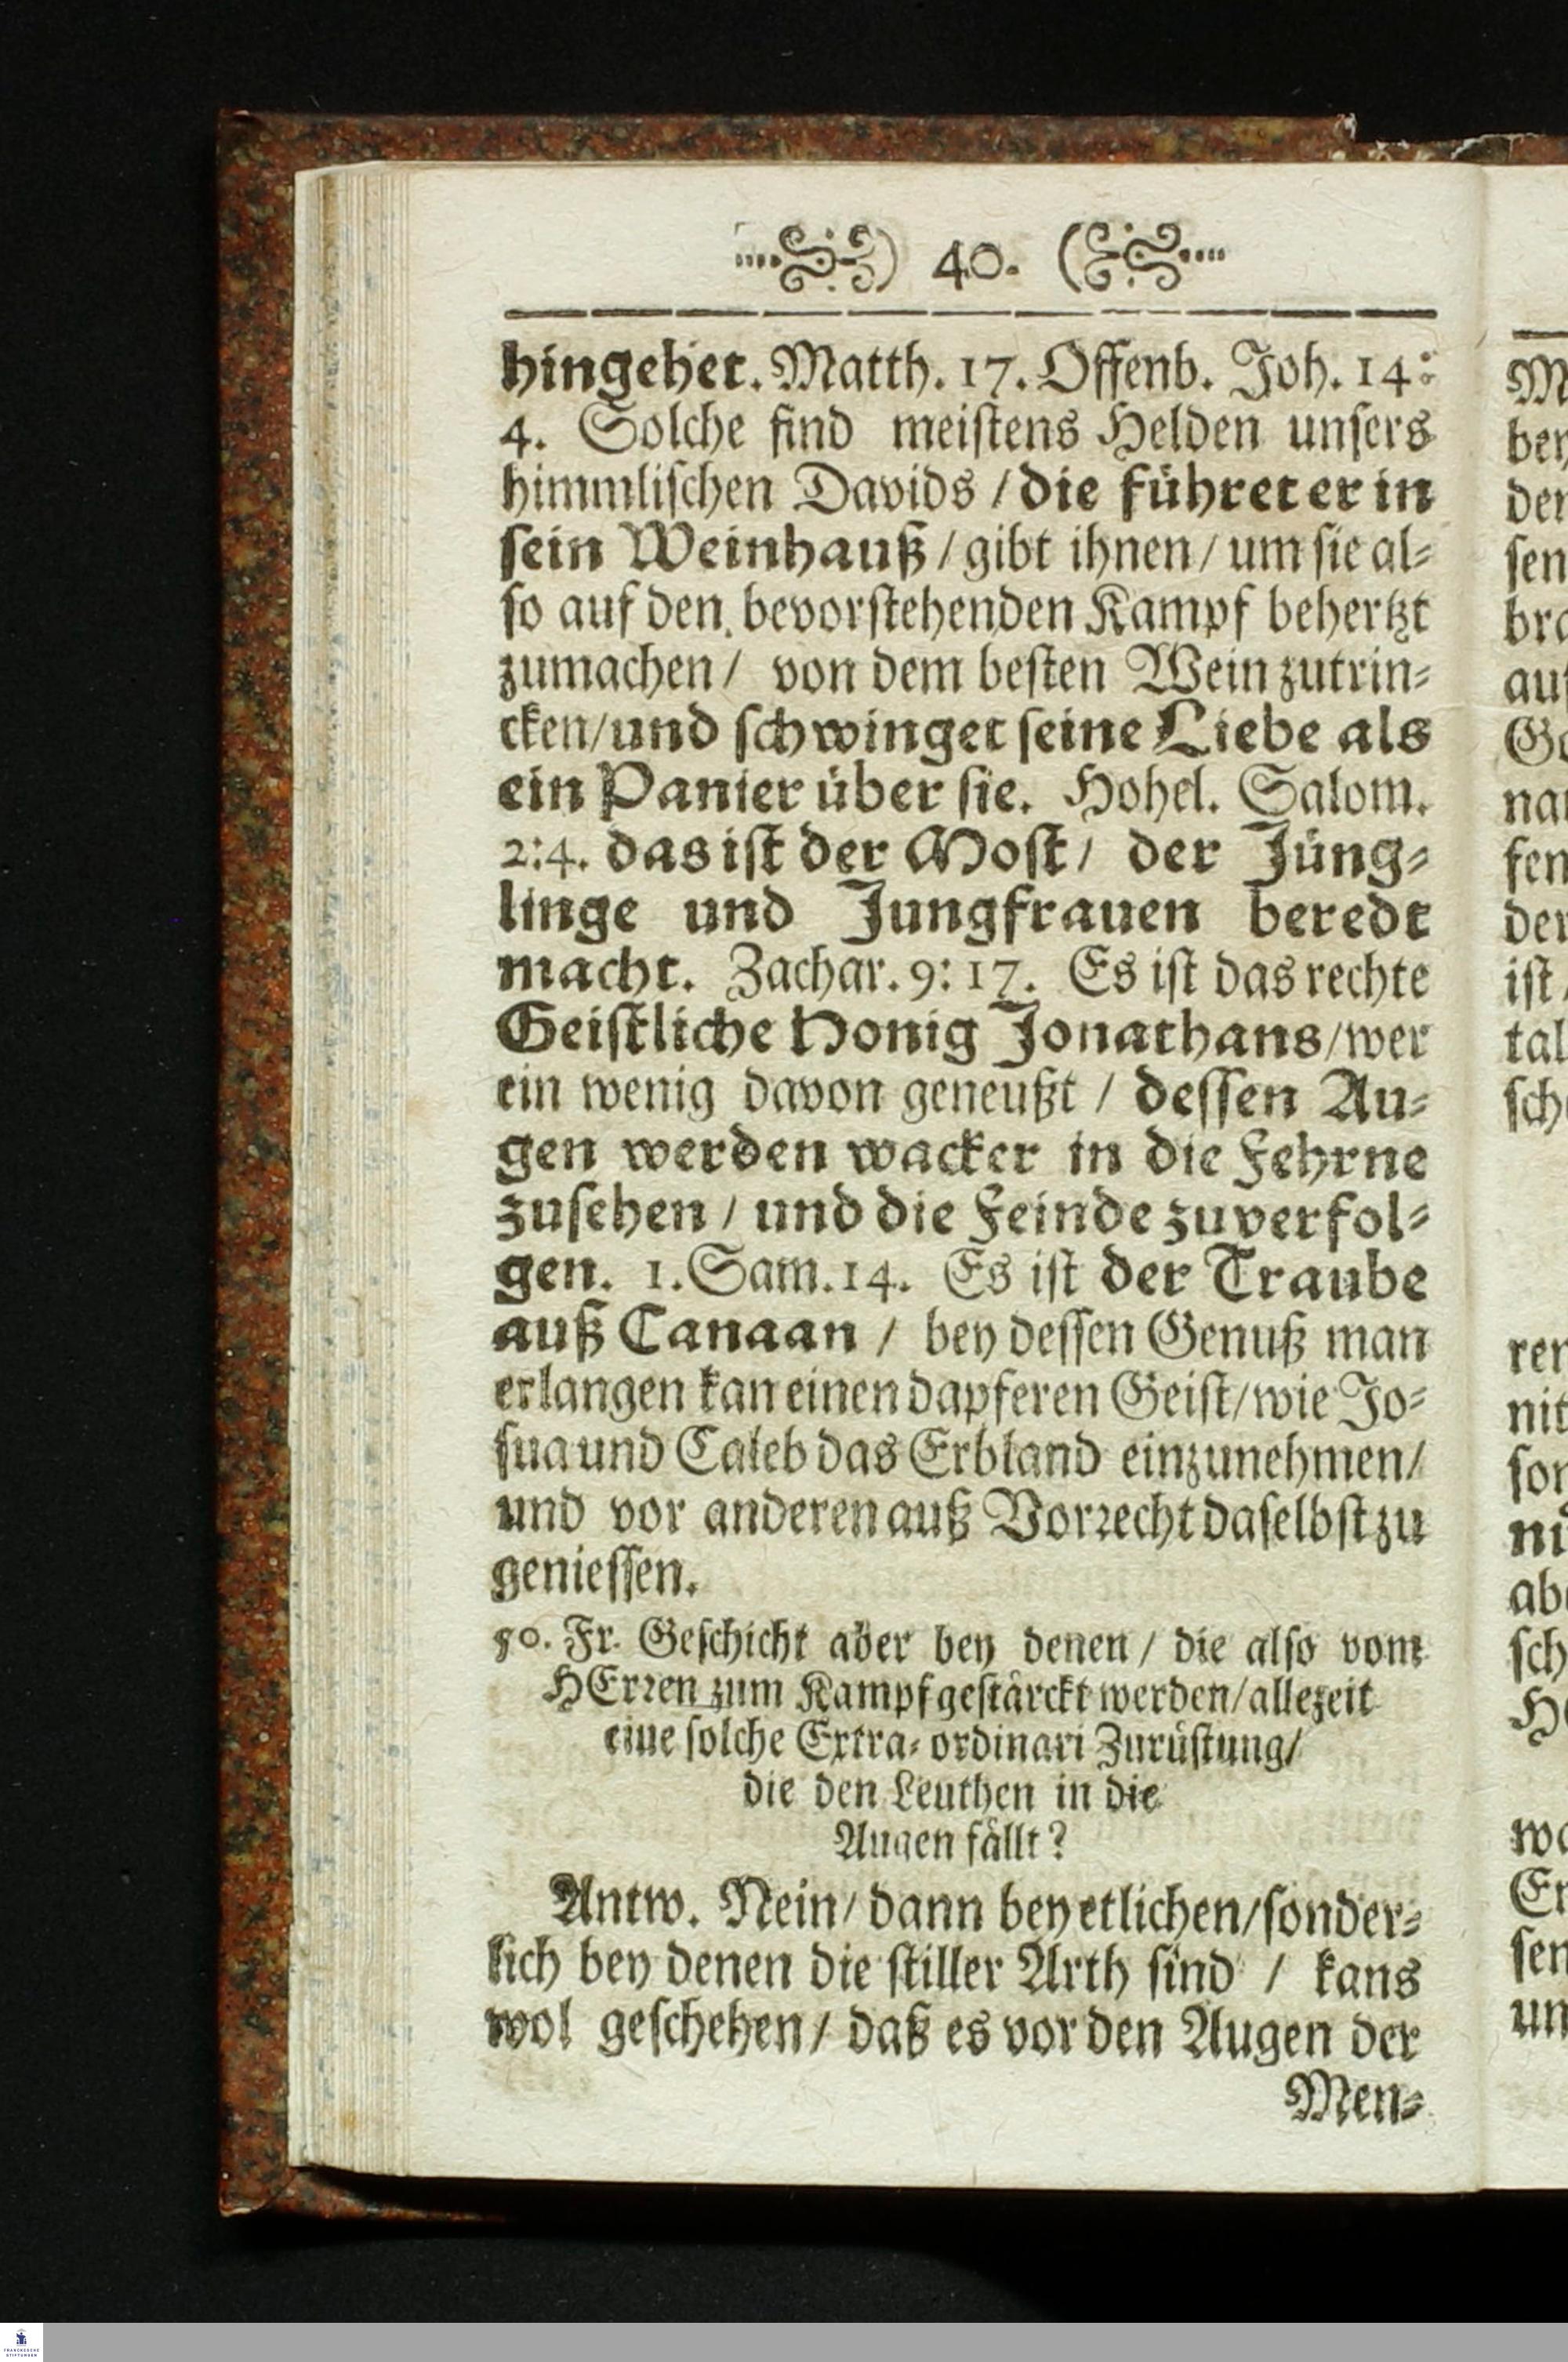 ) 40. (
hingehet. Matth. 17. Offenb. Joh. 14:
4. Solche sind meistens Helden unsers
himmlischen Davids / die führet er in
sein Weinhauß / gibt ihnen / um sie al-
so auf den bevorstehenden Kampf behertzt
zumachen / von dem besten Wein zutrin-
cken / und schwinget seine Liebe als
ein Panier über sie. Hohel. Salom.
2:4. das ist der Most / der Jüng-
linge und Jungfrauen beredt
macht. Zachar. 9: 17. Es ist das rechte
Geistliche Honig Jonathans / wer
ein wenig davon geneußt / dessen Au-
gen werden wacker in die Fehrne
zusehen / und die Feinde zuverfol-
gen. 1. Sam. 14. Es ist der Traube
auß Canaan / bey dessen Genuß man
erlangen kan einen dapferen Geist / wie Jo-
sua und Caleb das Erbland einzunehmen /
und vor anderen auß Vorrecht daselbst zu
geniessen.
50. Fr. Geschicht aber bey denen / die also vom
HErren zum Kampf gestärckt werden / allezeit
eine solche Extra-ordinari Zurüstung /
die den Leuthen in die
Augen fällt?
Antw. Nein / dann bey etlichen / sonder-
lich bey denen die stiller Arth sind / kans
wol geschehen / daß es vor den Augen der
Men-
M
bey
der
sen
bra
auf
Ge
nan
fen
der
ist /
tal
sch
ren
nit
son
ni
ab
sch
H
wo
Er
sen
un
FRANCKESCHE
STIFTUNGEN